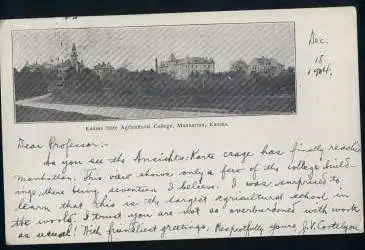 Dec.
18
1904.
Kansas State Agricultural College, Manhattan, Kansas.
Dear Professor:-
As you see the Ansichts-Karte craze has finally reached
Manhattan. This view shows only a few of the college build-
ings, there being seventeen I believe. I was surprised to
learn that this is the largest agricultural school in
the world. I trust you are not as overburdened with work
as usual! With friendliest greetings, Respectfully yours,